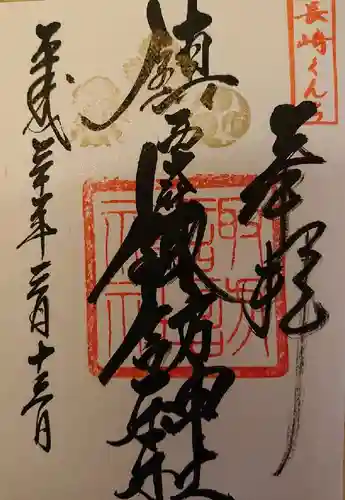 長崎くんち
奉拝
鎮西大社
諏訪神社
平成三十年三月十三日